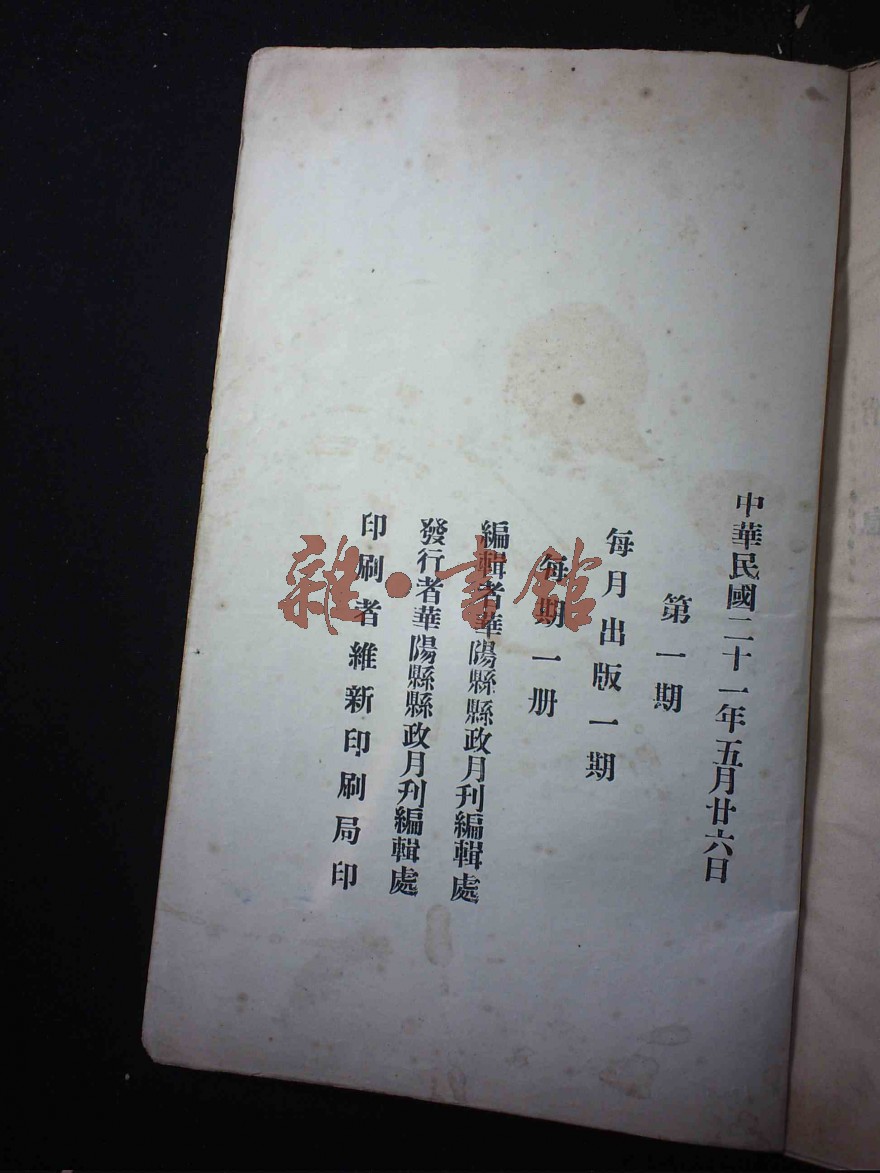 中華民國二十一年五月廿六日
第一期
每月出版一期
每期一册
編輯者華陽縣縣政月刋編輯處
發行者華陽縣縣政月刋編輯處
印刷者維新印刷局印
雜·書館